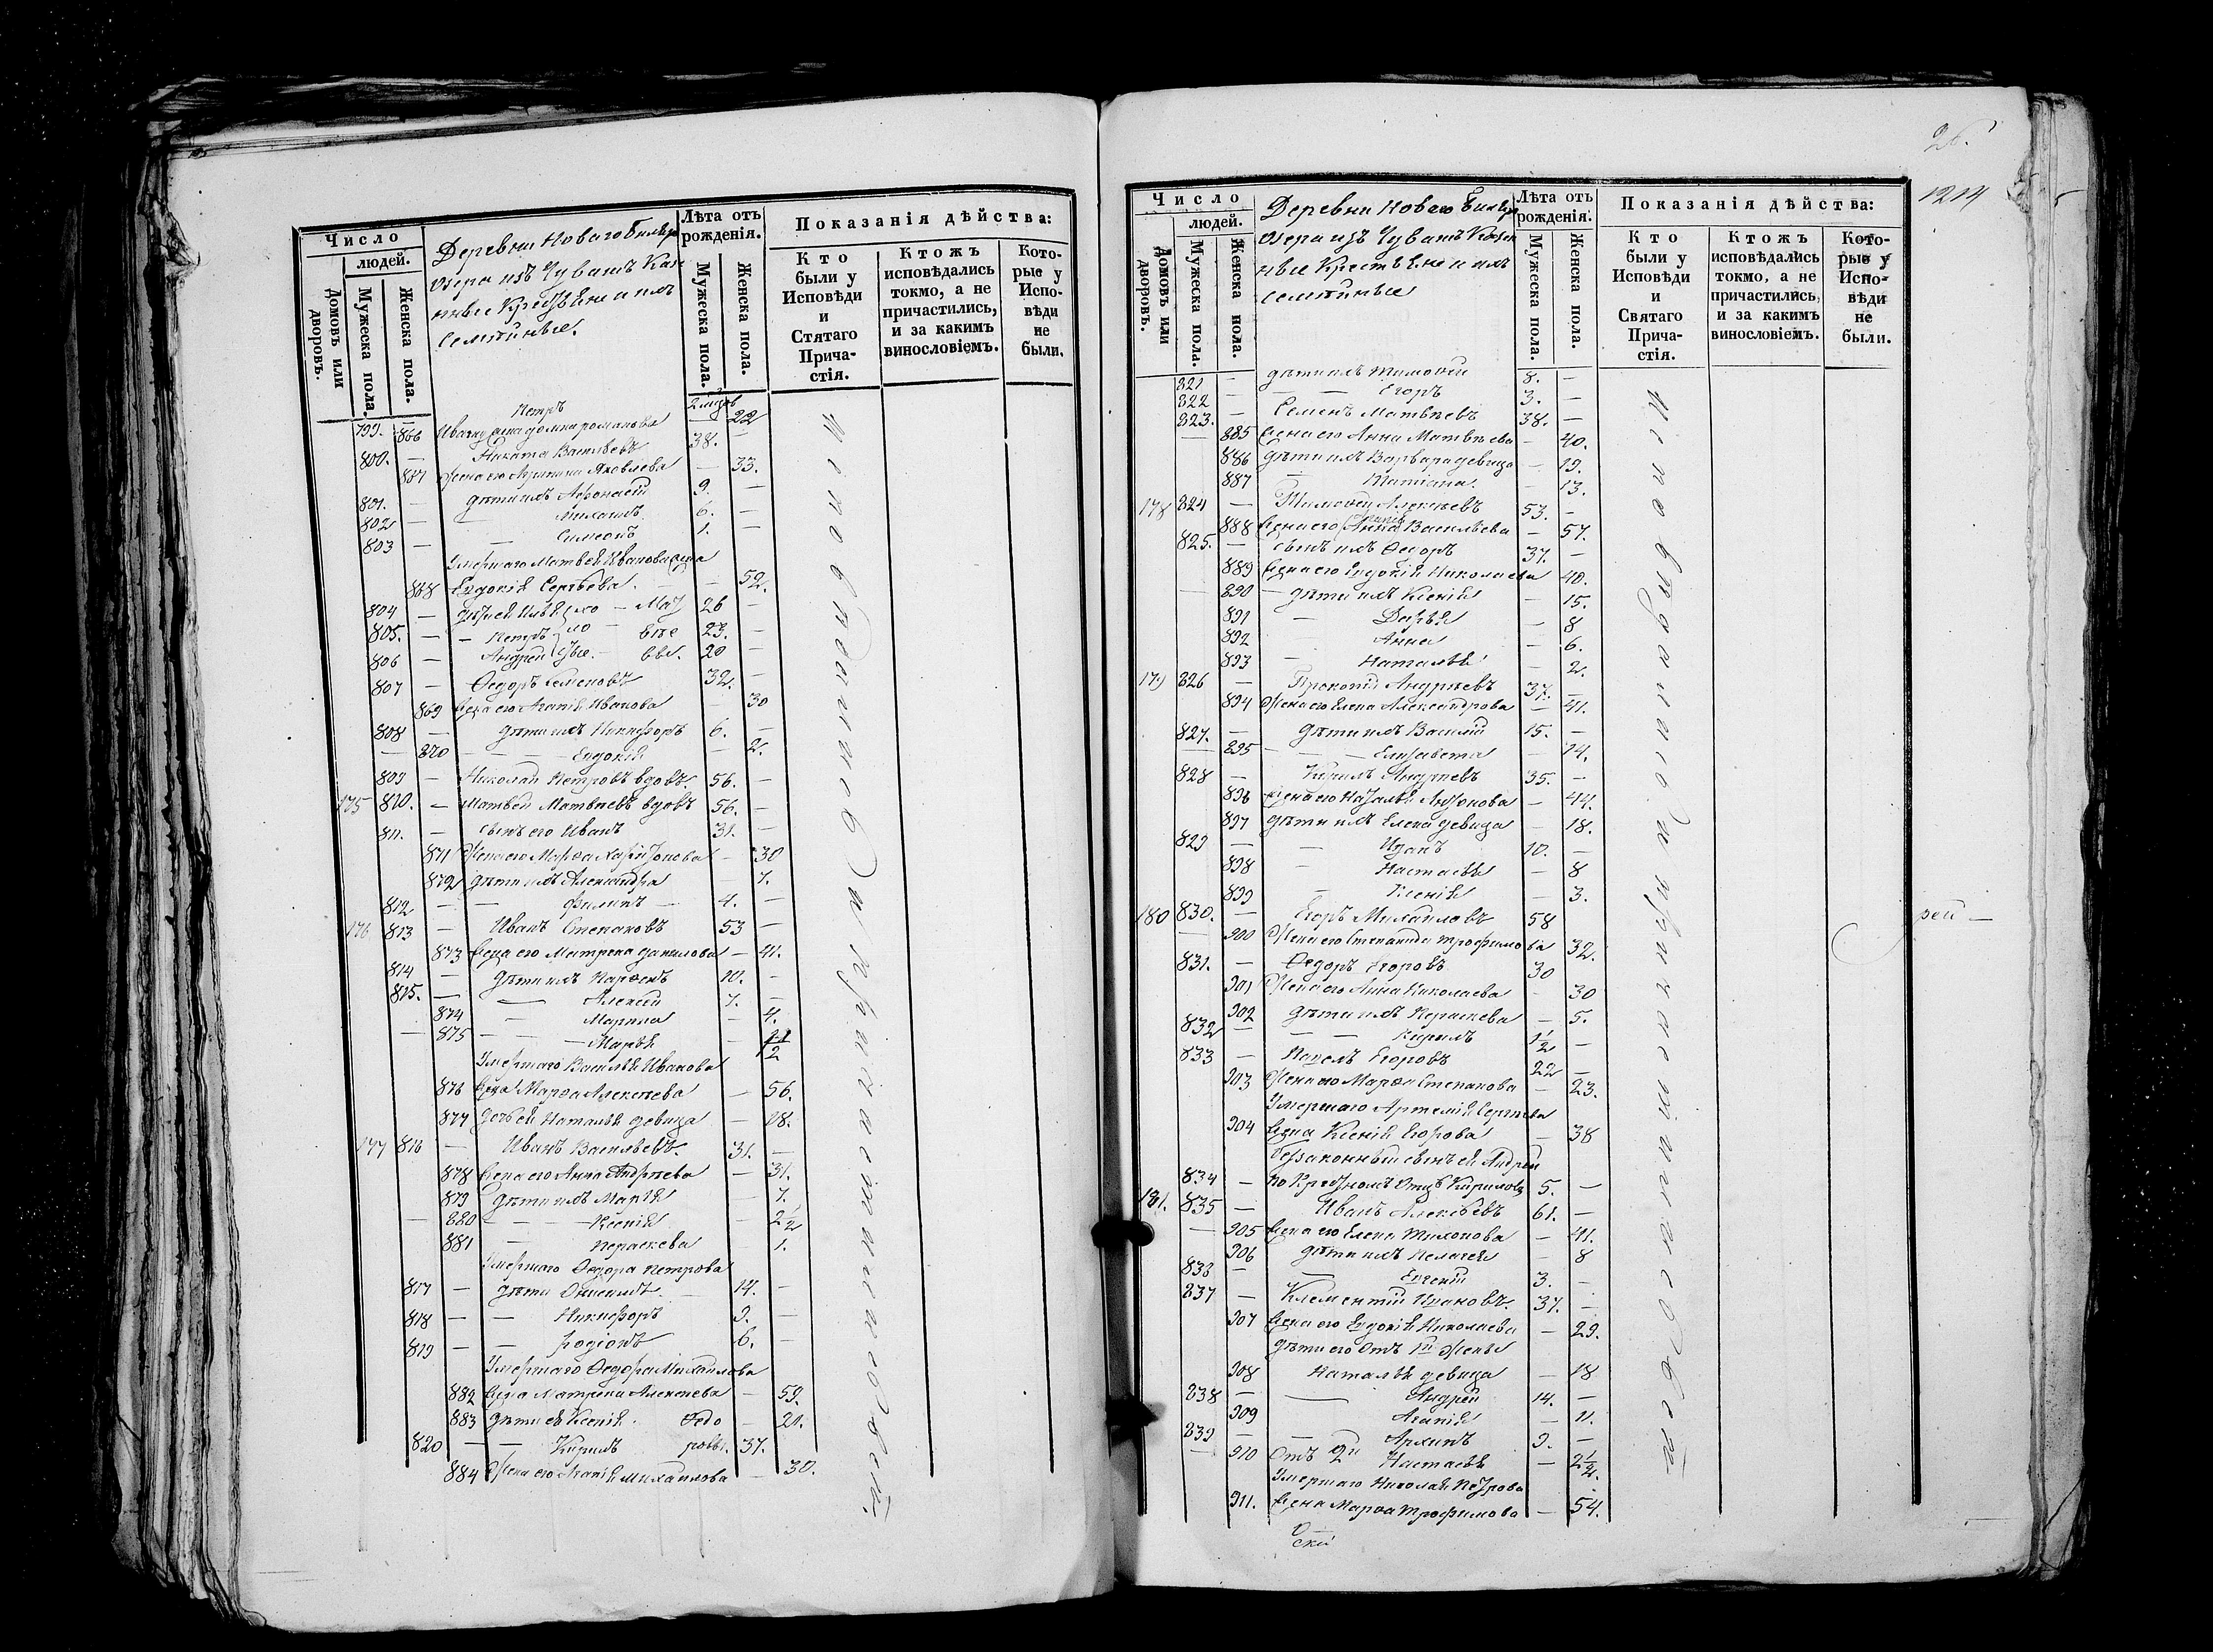 Число
людей.
Домовъ или дворовъ.
Мужеска пола.
Женска пола.
Деревни Новаго Биляр
озера изъ Чувашъ Казен
ные Крестьяне и ихъ
семейные.
Лѣта отъ рожденія.
Мужеска пола.
Женска пола.
Показанія дѣйства:
Кто были у Исповѣди и Стятаго Прича-стія.
Ктожъ исповѣдались токмо, а не причастились, и за какимъ винословіемъ.
Кото-рые у Испо-вѣди не были.
799. — Петръ
866 Ивану жена домна романова — 22
800. — Никита Васильевъ 38. —
867 Жена его Яковлева — 33.
801. — дѣти ихъ Афонасій 9. —
802 — Михаилъ 6. —
803 — Симеонъ 1. —
Умершаго Матвея Иванова жена
868 Евдокія Сергѣева. — 52.
804 — дѣти ея Илья 26 —
805. — Петръ 23. —
806 — Андрей 20 —
807 — Ѳедоръ Семеновъ 32. —
869 Жена его Агапія Иванова — 30
808 — дѣти ихъ Никифоръ 6. —
870 — Евдокія — 2.
809 — Николай Петровъ вдовъ. 56. —
175 810. — Матвей Матвѣевъ вдовъ 56. —
811. — сынъ его Иванъ 31. —
871 Жена его Марѳа Харитонова — 30
872 дѣти ихъ Александра — 7.
812 — Филипъ — 4. —
176 813 — Иванъ Степановъ 53 —
873 Жена его Матрена данилова — 41.
814 — дѣти ихъ Парѳенъ 10. —
815. — Алексей 7. —
874 — Марина — 4.
875 — Марья — 1/2
Умершаго Василья Иванова
876 Жена Марѳа Алексѣева — 56.
877 дочь ей Наталья девица — 18.
177 816 — Иванъ Васильевъ. 31. —
878 Жена его Анна Андрѣева — 31.
879 дѣти ихъ Марія — 7.
880 — Ксенія — 2 1/2
881 — Пераскева 1.
Умершаго Ѳедора Петрова
817 — дѣти Онисимъ. 14. —
818 — Никифоръ 9. —
819 — Родіонъ 6. —
Умершаго Ѳедора Михайлова
882 Жена Матрена Алексѣева — 59.
883 дѣти ея Ксенія. Ѳедо — 21.
820 — Кирилъ ровы. 37.
884 Жена его Агапія Михайлова — 30.
Исповѣдались и причастились
26.
1214
Число
людей.
Домовъ или дворовъ.
Мужеска пола.
Женска пола.
Деревни Новаго Биляр
озера изъ Чувашъ Казен
ные Крестьяне и ихъ
семейные
Лѣта отъ рожденія.
Мужеска пола.
Женска пола.
Показанія дѣйства:
Кто были у Исповѣди и Святаго Прича-стія.
Ктожъ исповѣдались токмо, а не причастились, и за какимъ винословіемъ.
Кото-рые у Испо-вѣди не были.
821 — дѣти ихъ Тимофей 8. —
822 — Егоръ 3. —
823. — Семенъ Матвѣевъ 38. —
885 Жена его Анна Матвѣева — 40.
886 дѣти ихъ Варвара девица — 19.
887 — Татіана. — 13.
178 824 — Тимофей Алексѣевъ 53. —
888 Жена его Анна Васильева — 57.
825. — сынъ ихъ Ѳедоръ 37. —
889 Жена его Евдокія Николаева 40.
890 — дѣти ихъ Ксенія — 15.
891 — Дарья — 8
892 — Анна — 6.
893 — Наталья — 2.
179 826 — Прокопій Андрѣевъ 37. —
894 Жена его Елена Александрова — 41.
827. — дѣти ихъ Василій 15. —
895 — Елизавета — 14.
828 — Кирилъ Андрѣевъ 35. —
896 Жена его Наталья Антонова — 44.
897 дѣти ихъ Елена девица — 18.
829 — Иванъ 10. —
898 — Настасья — 8
899 — Ксенія — 3.
180 830. — Егоръ Михайловъ 58
900 Жена его Степанида трофимова 32.
831. — Ѳедоръ Егоровъ 30
901 Жена его Анна Николаева — 30
902 дѣти ихъ Пераскева — 5.
832 — Кирилъ 1 1/2 —
833 — Павелъ Егоровъ 22 —
903 Жена его Марѳа Степанова — 23.
Умершаго Артемія Сергѣева
904 Жена Ксенія Егорова — 38
Незаконный сынъ ей Андрей
834 — по Крестномъ Отцѣ Кириловъ 5. —
181. 835 — Иванъ Алексѣевъ 61. —
905 Жена его Елена Тихонова — 41.
906 дѣти ихъ Пелагея — 8
836 — Евгений 3. —
837 — Клементій Ивановъ. 37. —
907 Жена его Евдокія Николаева — 29.
дѣти его Отъ 1й Жены
908 Наталья девица — 18
838 — Андрей 14. —
909 Агапія — 11.
839 — Архипъ 9. —
910 Отъ 2й Настасья — 2 1/2.
Умершаго Николая Петрова
911. Жена Марѳа Трофимова — 54.
рей —